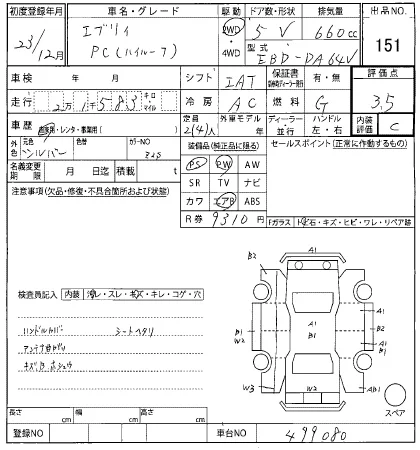 初度登録年月 車名・グレード 駆動 ドア数・形状 排気量 出品NO.
23/12月 エブリィ PC(ハイルーフ) 2WD・4WD 5 V 660cc 151
型式 EBD-DA64V
車検 年 月 シフト IAT 保証書 有・無 評価点
走行 2万1千583 キロ マイル 冷房 AC 燃料 G 3.5
車歴 自家用・レンタ・事業用( ) 定員 2(4)人 外車モデル 年 ディーラー 並行 ハンドル 左・右 内装評価 C
外色 元色 シルバー 色替 カラーNO Z2S
装備品(純正品に限る) セールスポイント(正常に作動するもの)
PS PW AW
名義変更期限 月 日迄 積載 t
SR TV ナビ
注意事項(欠品・修復・不具合箇所および状態)
カワ エアB ABS
R券 9310円
Fガラス トビ石・キズ・ヒビ・ワレ・リペア跡
検査員記入 内装 汚レ・スレ・キズ・キレ・コゲ・穴
ハンドルカバー シートヘタリ
キズ凹 ホシュウ
B2 A1
A1
B1 W2 A1 B1 B2 W1
A1
W3 W2 A1 AB1
スペア
長さ cm 幅 cm 高さ cm
登録NO 車台NO 499080